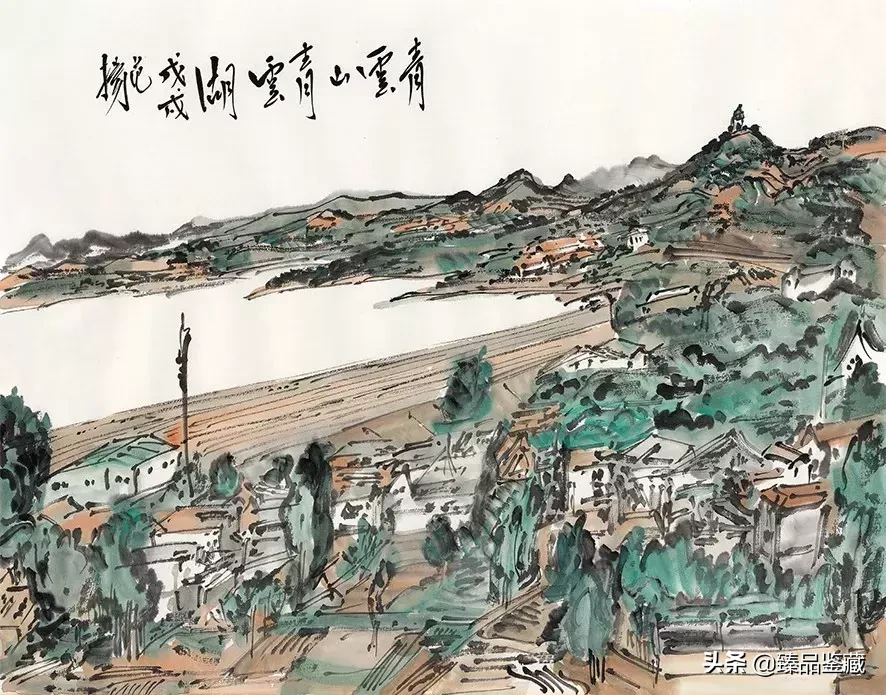 青雲山青雲湖戊戌范揚
头条 @臻品鉴藏